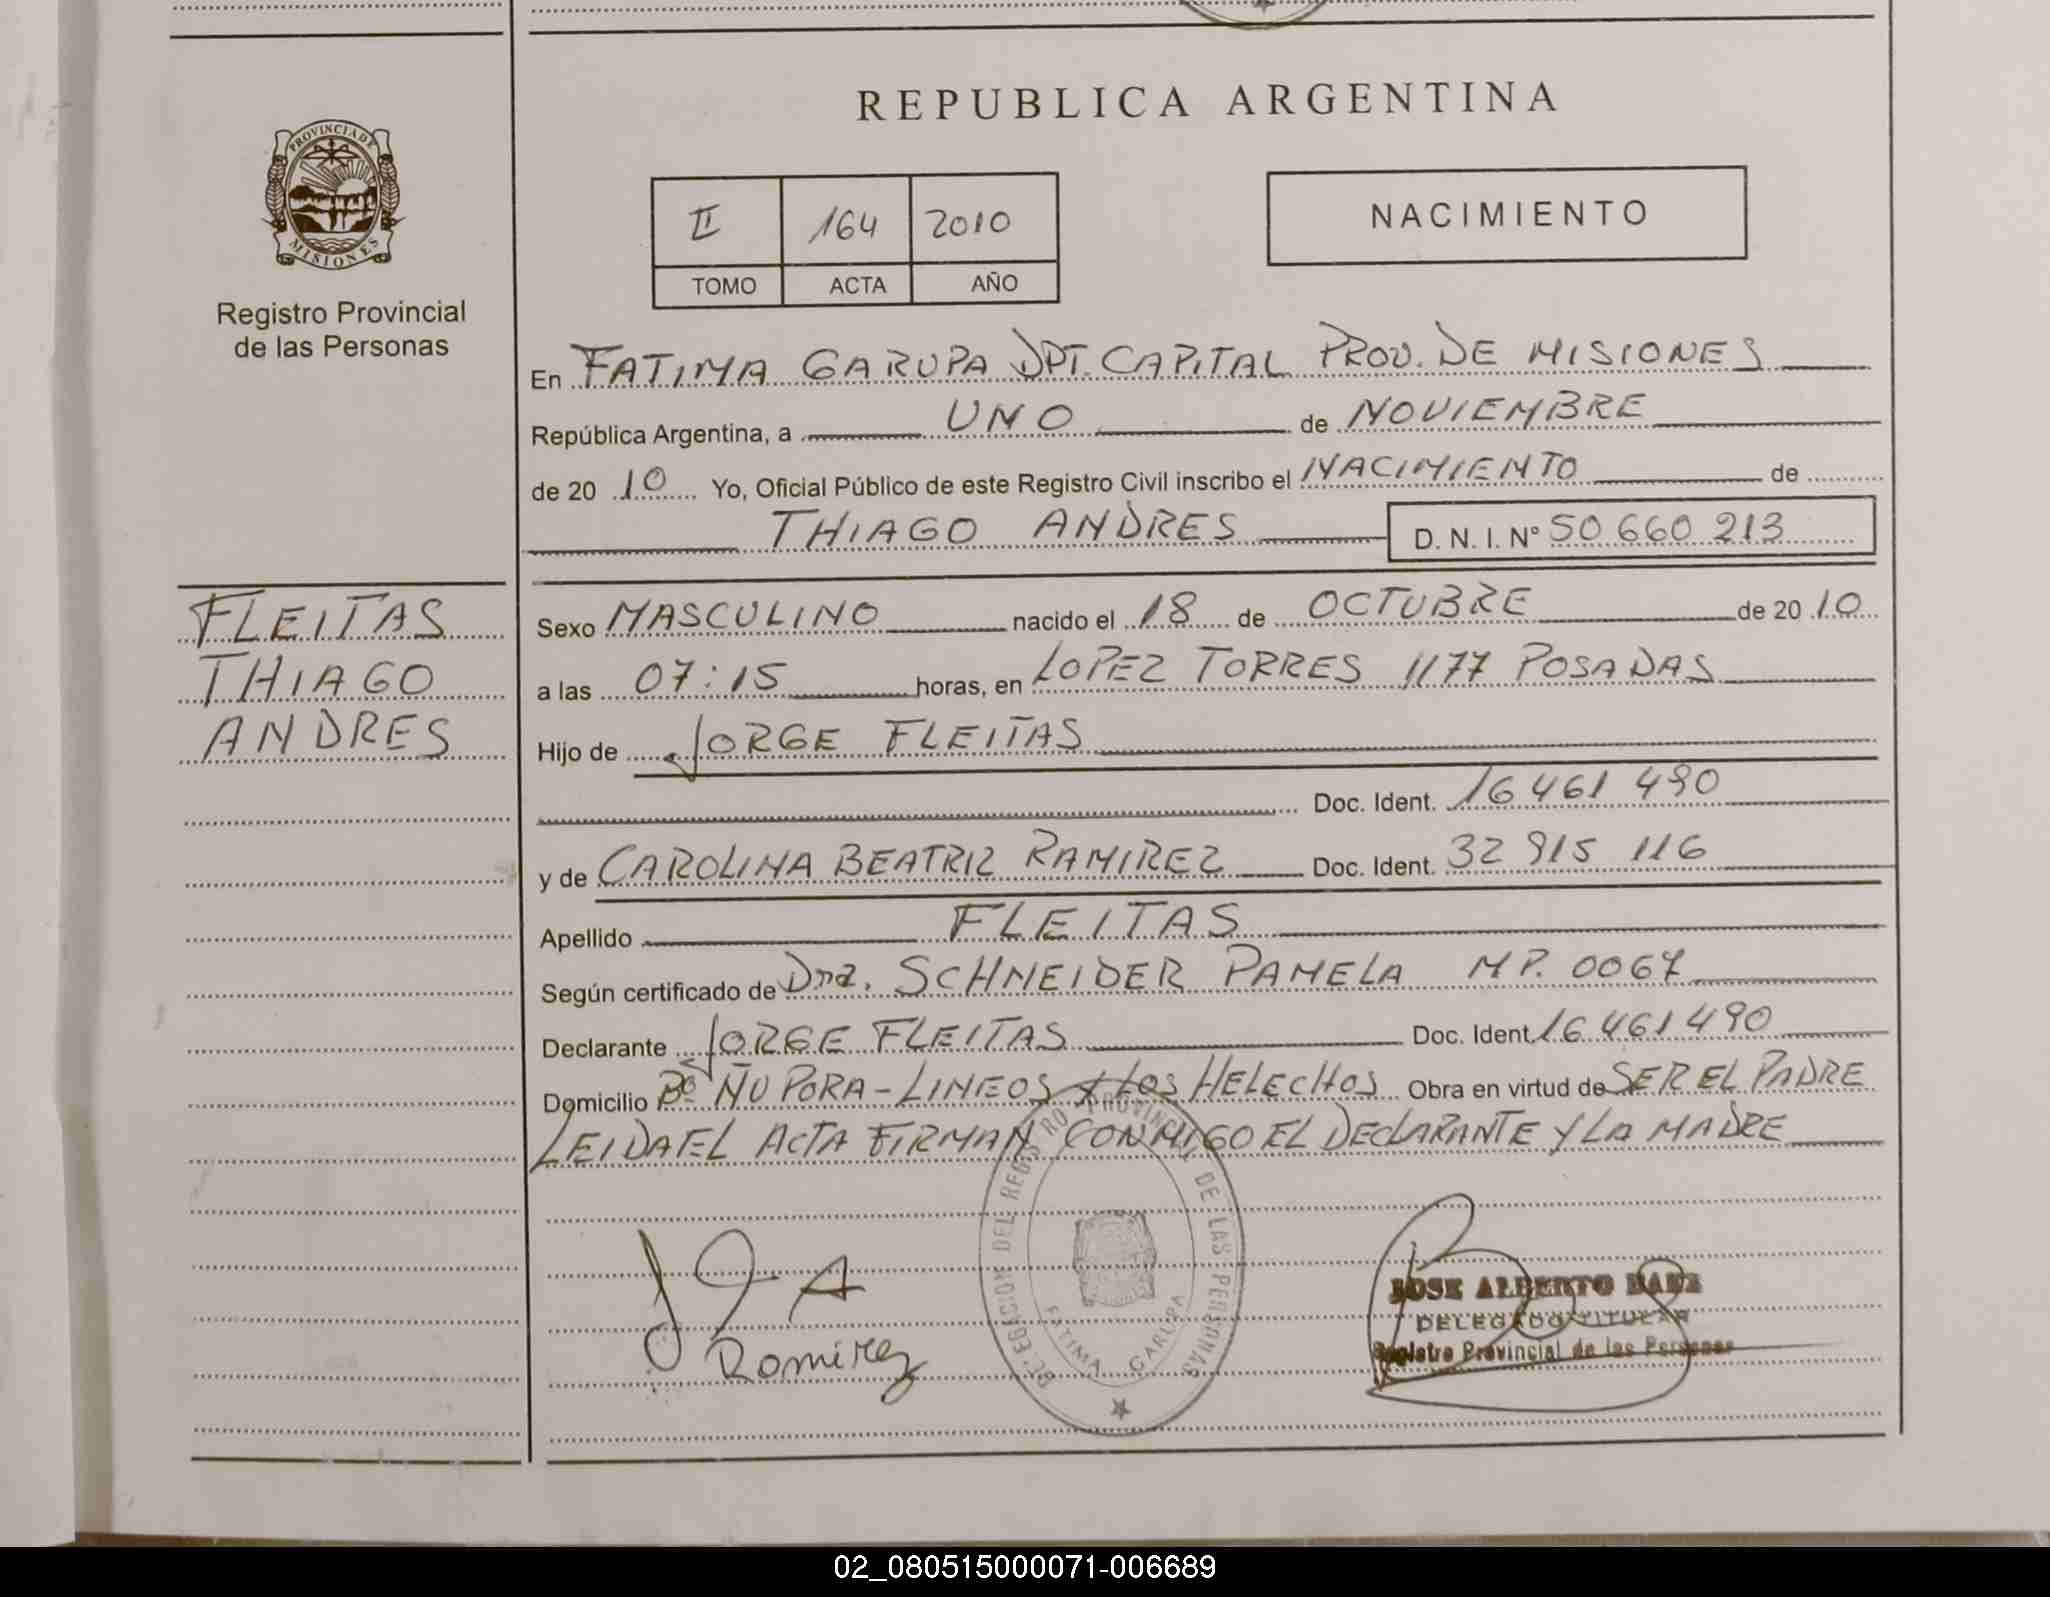 REPUBLICA ARGENTINA
PROVINCIA DE
MISIONES
Registro Provincial
de las Personas
II 164 2010
TOMO ACTA AÑO
NACIMIENTO
En FATIMA GARUPA DPT. CAPITAL PROV. DE MISIONES
República Argentina, a UNO de NOVIEMBRE
de 20 10 Yo, Oficial Público de este Registro Civil inscribo el NACIMIENTO de
THIAGO ANDRES D. N. I. Nº 50 660 213
FLEITAS
THIAGO
ANDRES
Sexo MASCULINO nacido el 18 de OCTUBRE de 20 10
a las 07:15 horas, en LOPEZ TORRES 1177 POSADAS
Hijo de JORGE FLEITAS
Doc. Ident. 16 461 490
y de CAROLINA BEATRIZ RAMIREZ Doc. Ident. 32 915 116
Apellido FLEITAS
Según certificado de Dra. SCHNEIDER PAMELA MP. 0067
Declarante JORGE FLEITAS Doc. Ident. 16 461 490
Domicilio Bº ÑU PORA - LINEOS Y LOS HELECHOS Obra en virtud de SER EL PADRE
LEIDA EL ACTA FIRMAN CONMIGO EL DECLARANTE Y LA MADRE
DELEGACION DEL REGISTRO PROVINCIAL DE LAS PERSONAS
FATIMA GARUPA
Ramirez
JOSE ALBERTO BAEZ
DELEGADO TITULAR
Registro Provincial de las Personas
02_080515000071-006689